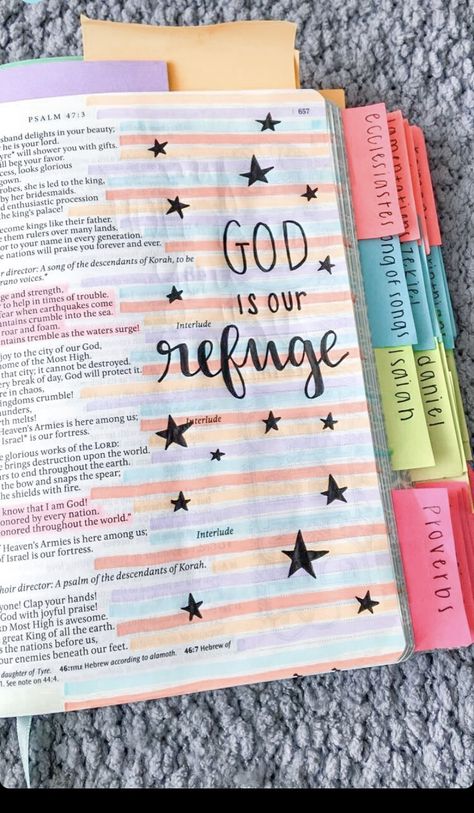 PSALM 47:3
657
usband delights in your beauty;
he is your lord.
yre* will shower you with gifts.
ll beg your favor.
cess, looks glorious
gown.
robes, she is led to the king,
by her bridesmaids.
nd enthusiastic procession
the king's palace!
ecome kings like their father.
e them rulers over many lands.
or to your name in every generation.
ns will praise you forever and ever.
ir director: A song of the descendants of Korah, to be
rano voices.*
ge and strength,
to help in times of trouble.
fear when earthquakes come
ntains crumble into the sea.
roar and foam.
ntains tremble as the waters surge!
Interlude
joy to the city of our God,
home of the Most High.
that city; it cannot be destroyed.
ery break of day, God will protect it.
re in chaos,
kingdoms crumble!
hunders,
rth melts!
Heaven's Armies is here among us;
Israel* is our fortress.
Interlude
e glorious works of the LORD:
brings destruction upon the world.
rs to end throughout the earth.
the bow and snaps the spear;
the shields with fire.
know that I am God!
onored by every nation.
onored throughout the world."
Heaven's Armies is here among us;
Israel is our fortress.
Interlude
hoir director: A psalm of the descendants of Korah.
yone! Clap your hands!
God with joyful praise!
RD Most High is awesome.
great King of all the earth.
s the nations before us,
our enemies beneath our feet.
daughter of Tyre.
46:TITLE Hebrew according to alamoth.
46:7 Hebrew of
1. See note on 44:4.
GOD
IS OUR
refuge
ecclesiastes
song of songs
isaiah
daniel
Proverbs